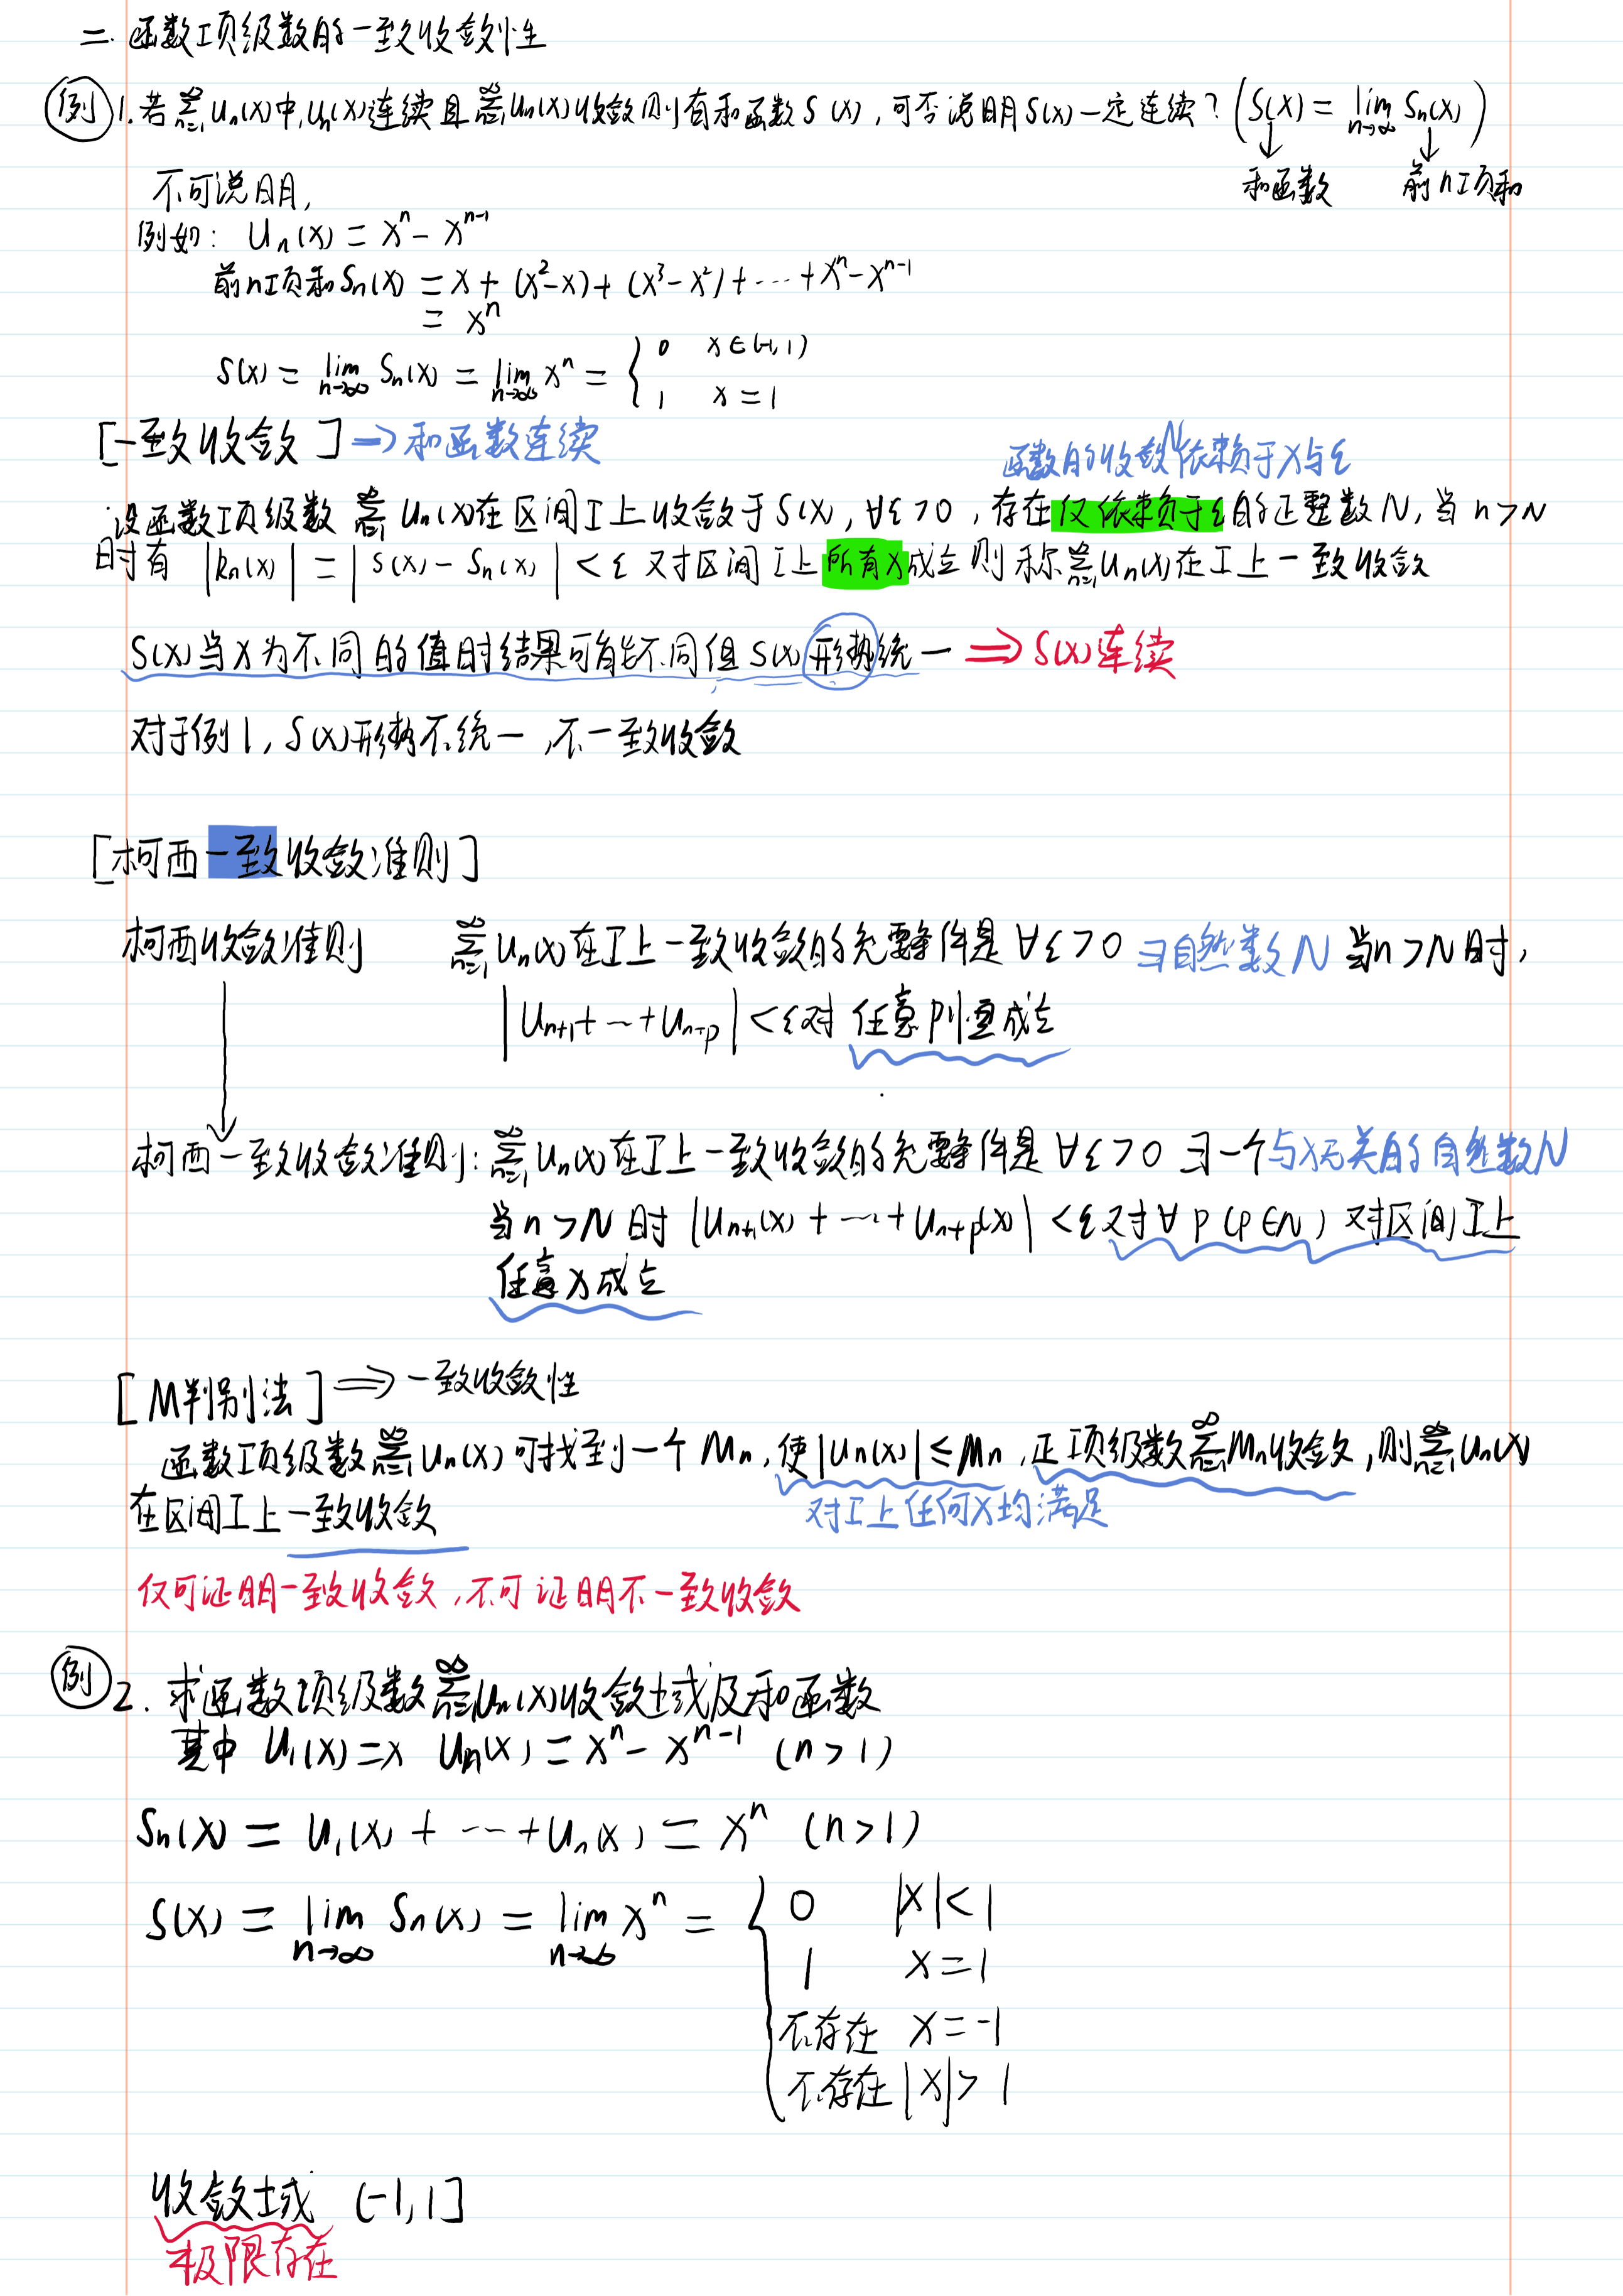 二. 函数项级数的一致收敛性
例 1. 若 $\sum_{n=1}^{\infty} u_n(x)$ 中, $u_n(x)$ 连续且 $\sum_{n=1}^{\infty} u_n(x)$ 收敛则有和函数 S(x), 可否说明 S(x) 一定连续? ( $S(x) = \lim_{n\to\infty} S_n(x)$ )
↓ ↓
和函数 前n项和
不可说明,
例如: $u_n(x) = x^n - x^{n-1}$
前n项和 $S_n(x) = x + (x^2 - x) + (x^3 - x^2) + \cdots + x^n - x^{n-1}$
$= x^n$
$S(x) = \lim_{n\to\infty} S_n(x) = \lim_{n\to\infty} x^n = \begin{cases} 0 & x \in (-1, 1) \\ 1 & x = 1 \end{cases}$
[一致收敛] → 和函数连续
函数的收敛N依赖于x与ε
设函数项级数 $\sum_{n=1}^{\infty} u_n(x)$ 在区间I上收敛于S(x), ∀ε>0, 存在仅依赖于ε的正整数N, 当 n>N
时有 $|R_n(x)| = |S(x) - S_n(x)| < ε$ 对区间I上所有x成立则称 $\sum_{n=1}^{\infty} u_n(x)$ 在I上一致收敛
S(x)当x为不同的值时结果可能不同但S(x)形势统一 ⇒ S(x)连续
对于例1, S(x)形势不统一, 不一致收敛
[柯西一致收敛准则]
柯西收敛准则 $\sum_{n=1}^{\infty} u_n(x)$ 在I上一致收敛的充要条件是 ∀ε>0 ∃自然数N 当n>N时,
$|u_{n+1} + \cdots + u_{n+p}| < ε$ 对任意p恒成立
↓
柯西一致收敛准则: $\sum_{n=1}^{\infty} u_n(x)$ 在I上一致收敛的充要条件是 ∀ε>0 ∃一个与x无关的自然数N
当n>N时 $|u_{n+1}(x) + \cdots + u_{n+p}(x)| < ε$ 对∀p(p∈N) 对区间I上
任意x成立
[M判别法] ⇒ 一致收敛性
函数项级数 $\sum_{n=1}^{\infty} u_n(x)$ 可找到一个 $M_n$, 使 $|u_n(x)| ≤ M_n$, 正项级数 $\sum_{n=1}^{\infty} M_n$ 收敛, 则 $\sum_{n=1}^{\infty} u_n(x)$
在区间I上一致收敛 对I上任何x均满足
仅可证明一致收敛, 不可证明不一致收敛
例 2. 求函数项级数 $\sum_{n=1}^{\infty} u_n(x)$ 收敛域及和函数
其中 $u_1(x) = x$ $u_n(x) = x^n - x^{n-1}$ (n>1)
$S_n(x) = u_1(x) + \cdots + u_n(x) = x^n$ (n>1)
$S(x) = \lim_{n\to\infty} S_n(x) = \lim_{n\to\infty} x^n = \begin{cases} 0 & |x|<1 \\ 1 & x=1 \\ 不存在 & x=-1 \\ 不存在 & |x|>1 \end{cases}$
收敛域 (-1,1]
极限存在